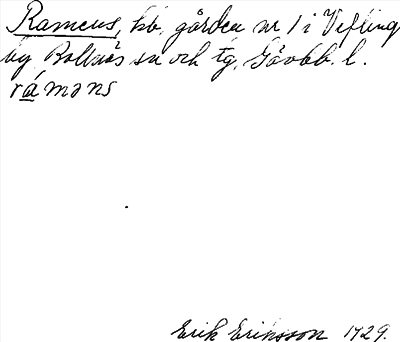 Ramens, hb. gården nr 1 i Vefling
by Bollnäs sn och tg, Gävlb. l.
rámǝns
Erik Eriksson 1729.